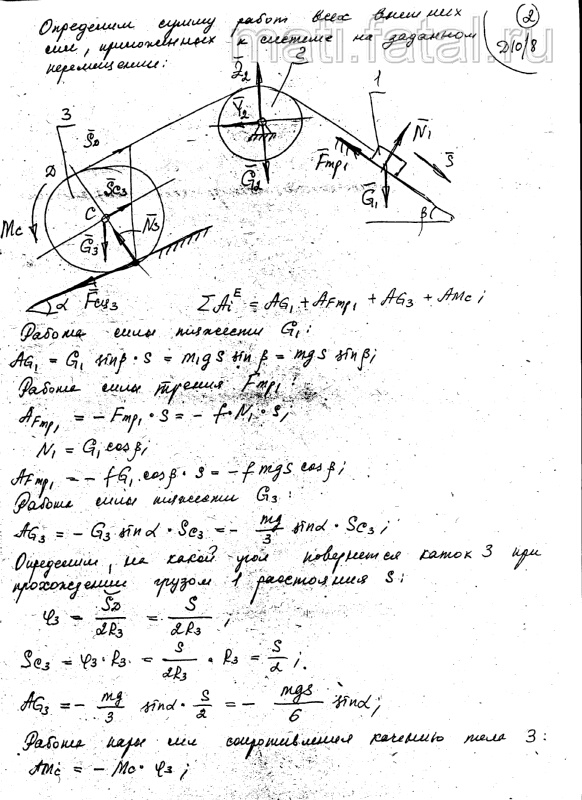 Определим сумму работ всех внешних
сил, приложенных к системе на заданном
перемещении:
2
Д10/8
mati.fatal.ru
3
S̄D
D
Mc
C
S̄C3
Ḡ3
N̄3
F̄сц3
α
Z̄2
2
Ȳ2
Ḡ2
1
N̄1
F̄тр1
S̄
Ḡ1
β
ΣAiᴱ = AG1 + AFтр1 + AG3 + AMc;
Работа силы тяжести G1:
AG1 = G1 sinβ · S = m1gS sinβ = mgS sinβ;
Работа силы трения Fтр1:
AFтр1 = − Fтр1 · S = − f · N1 · S;
N1 = G1 cosβ;
AFтр1 = − fG1 cosβ · S = − f mgS cosβ;
Работа силы тяжести G3:
AG3 = − G3 sinα · SC3 = − mg/3 sinα · SC3;
Определим, на какой угол повернется каток 3 при
прохождении грузом 1 расстояния S:
φ3 = S̄D/2R3 = S/2R3;
SC3 = φ3 · R3 = S/2R3 · R3 = S/2;
AG3 = − mg/3 sinα · S/2 = − mgS/6 sinα;
Работа пары сил сопротивления качению тела 3:
AMc = − Mc · φ3;